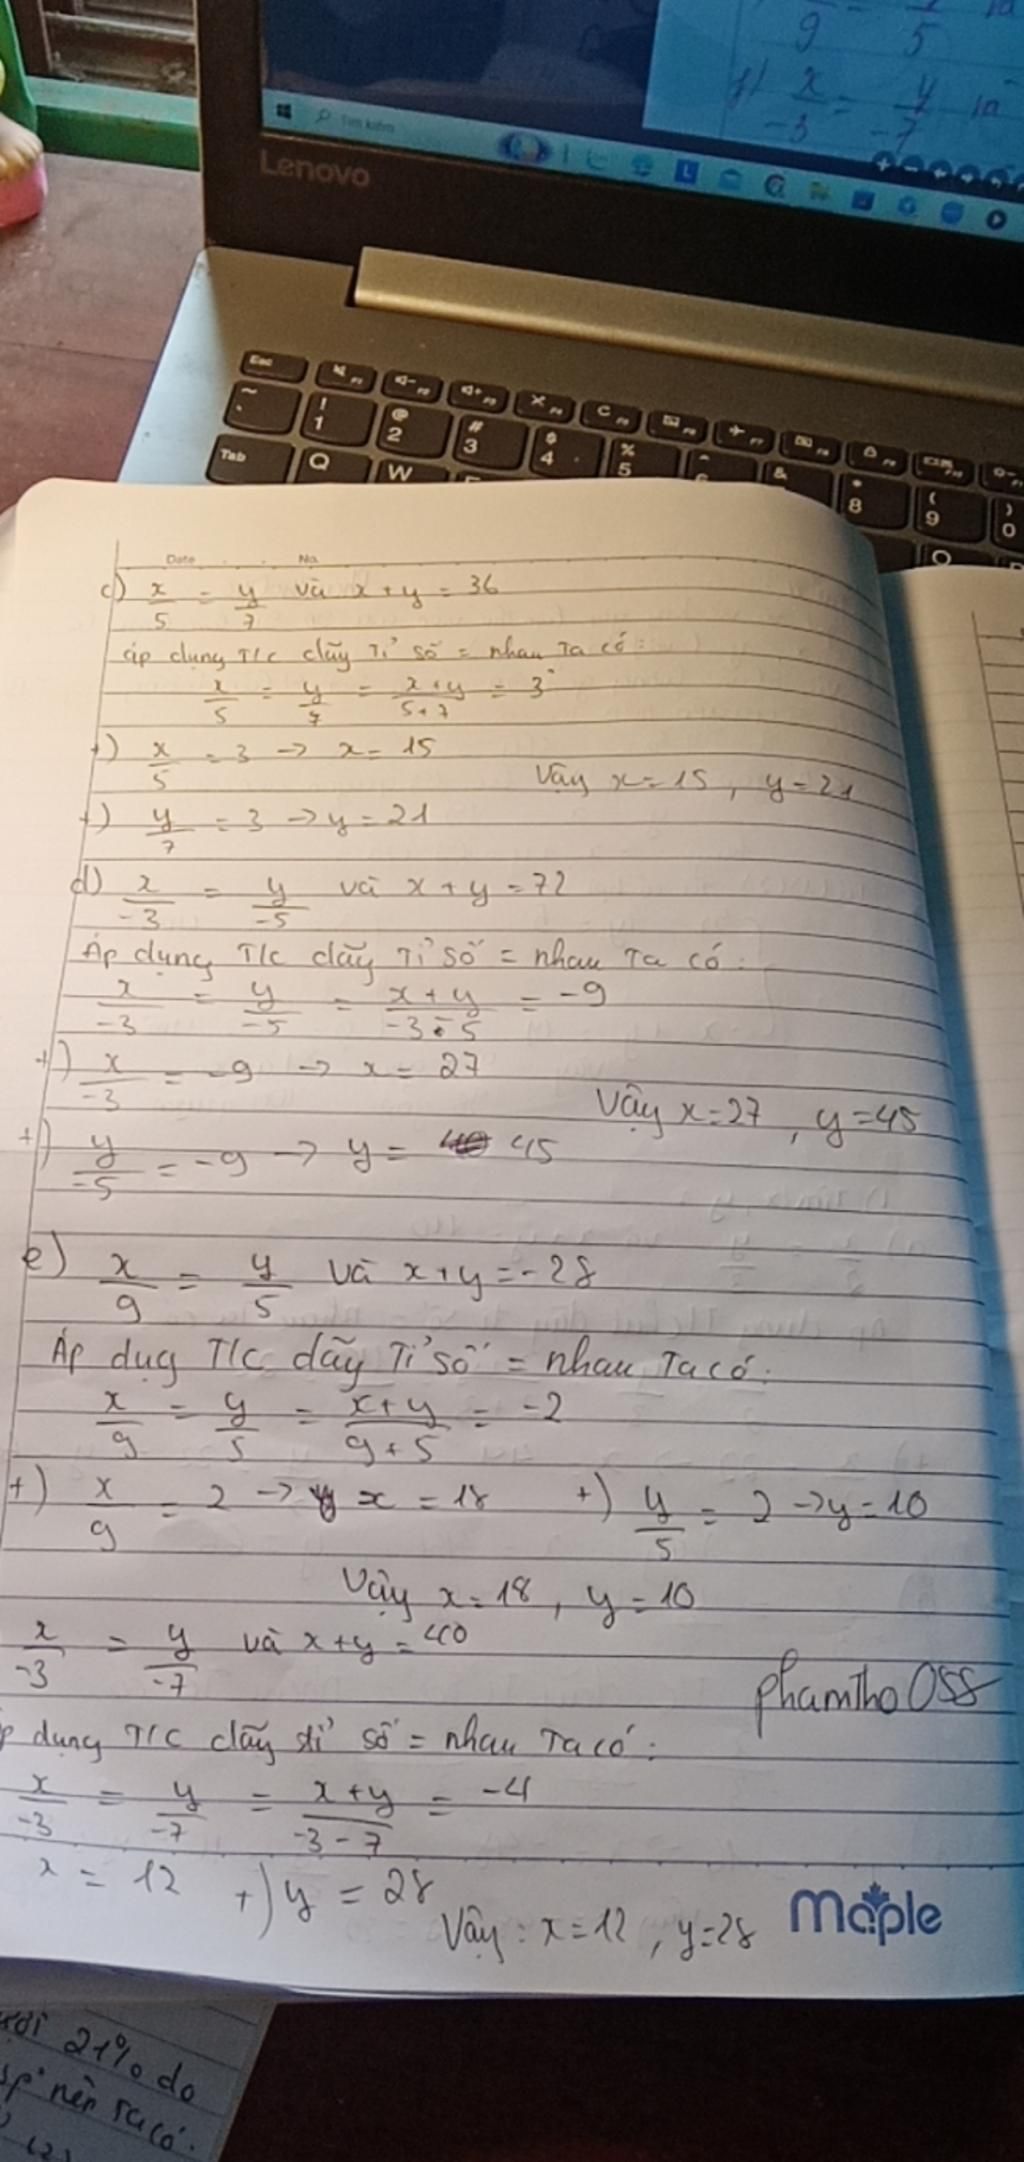 9 = 5
f) x/-3 = y/-7
Tìm kiếm
Lenovo
Esc
! 1 @ 2 # 3 $ 4 % 5 & * 8 ( 9 ) 0
Tab Q W O
Date No.
c) x/5 = y/7 và x + y = 36
áp dụng T/c dãy Tỉ số = nhau Ta có :
x/5 = y/7 = x+y/5+7 = 3
+) x/5 = 3 → x = 15
Vậy x = 15 , y = 21
+) y/7 = 3 → y = 21
d) x/-3 = y/-5 và x + y = 72
Áp dụng T/c dãy Tỉ số = nhau Ta có :
x/-3 = y/-5 = x+y/-3-5 = -9
+) x/-3 = -9 → x = 27
Vậy x = 27 , y = 45
+) y/-5 = -9 → y = 45
e) x/9 = y/5 và x + y = -28
Áp dug T/c dãy Tỉ số = nhau Ta có :
x/9 = y/5 = x+y/9+5 = -2
+) x/9 = 2 → x = 18 +) y/5 = 2 → y = 10
Vậy x = 18 , y = 10
x/-3 = y/-7 và x + y = 40
phamtho OSS
p dụng T/c dãy tỉ số = nhau Ta có :
x/-3 = y/-7 = x+y/-3-7 = -4
x = 12 +) y = 28
Vậy : x = 12 , y = 28
Maple
với 21% do
nên ta có.